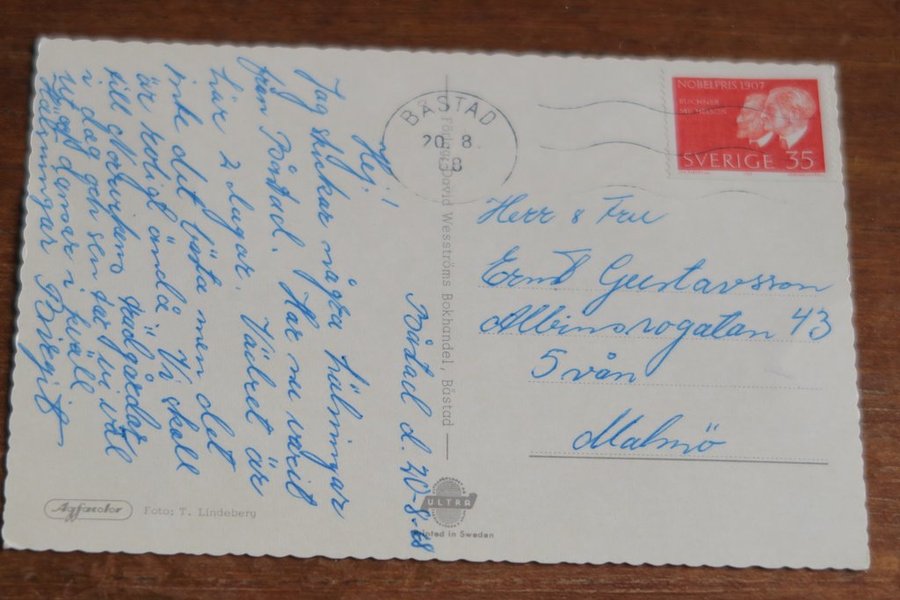 Båstad d. 20-8-68
Hej!
Jag skickar några hälsningar
från Båstad. Har nu varit
här 2 dagar. Vädret är
inte det bästa men det
är roligt ändå. Vi skall
till Norrvikens trädgårdar
i dag gen sen tar vi väl
tåget hem i kväll
Hälsningar Birgit
BÅSTAD
20. 8.
68
NOBELPRIS 1907
BUCHNER
MICHELSON
SVERIGE 35
Herr & Fru
Ernst Gustavsson
Albinsrogatan 43
5 vån
Malmö
David Wesströms Bokhandel, Båstad
Agfacolor
Foto: T. Lindeberg
ULTRA
Printed in Sweden